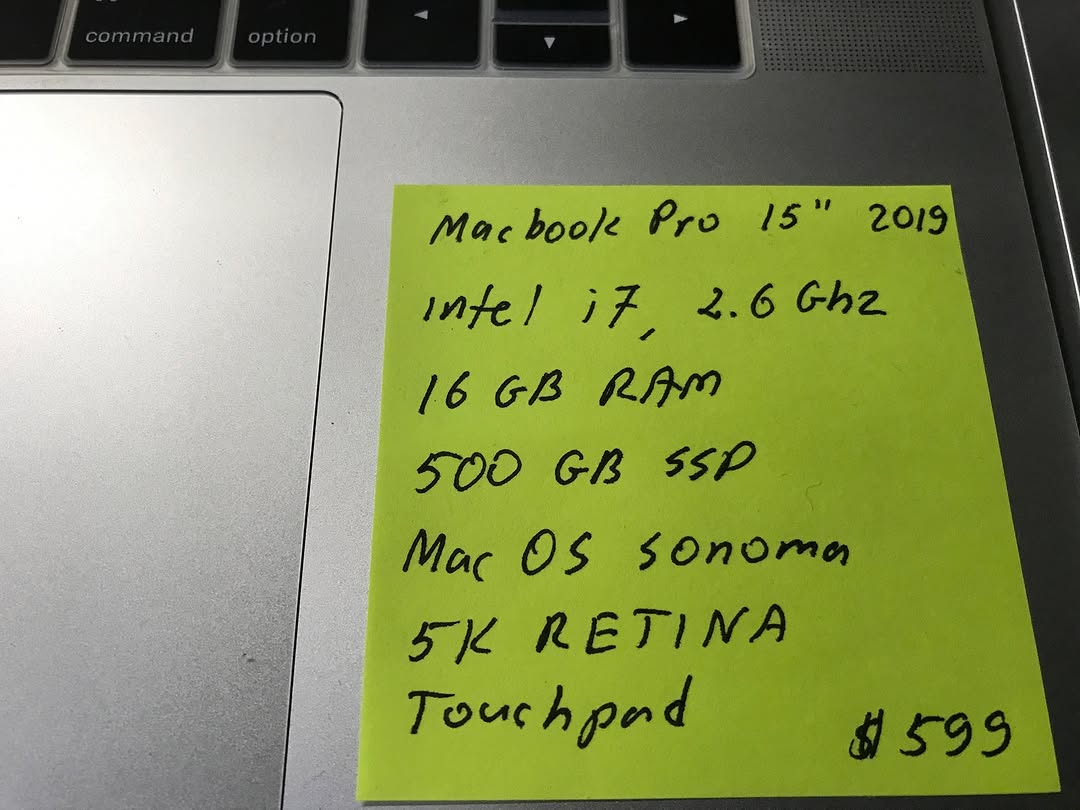 command option ◄ ▼ ►
Macbook Pro 15" 2019
intel i7, 2.6 Ghz
16 GB RAM
500 GB SSD
Mac OS sonoma
5K RETINA
Touchpad
$599